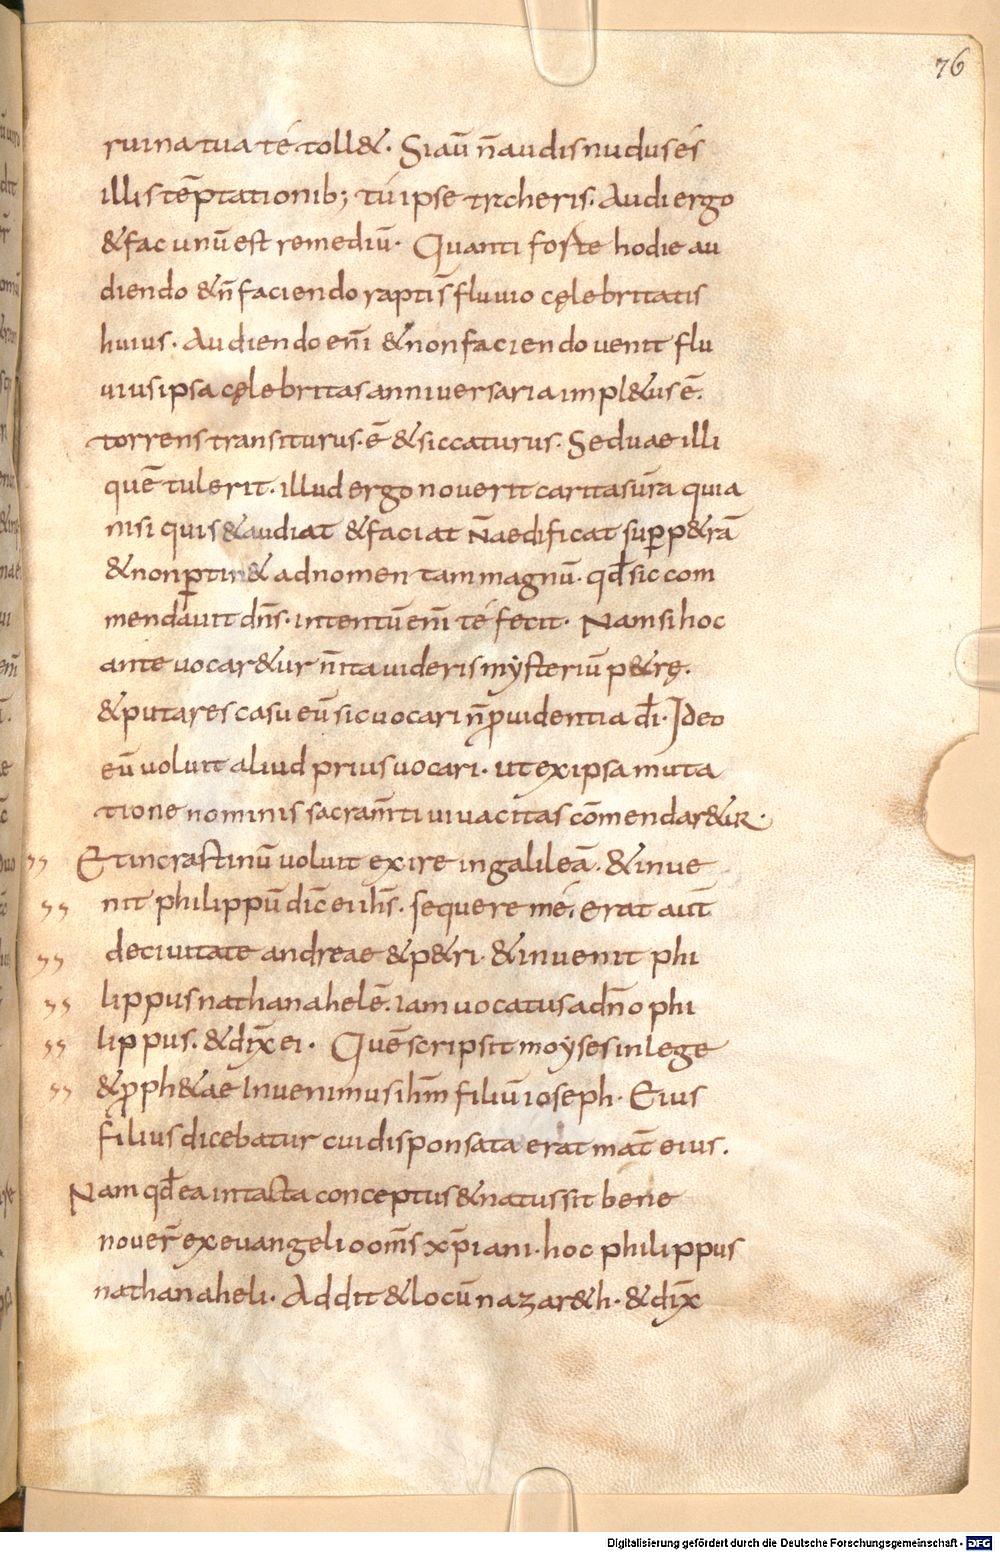 76
ruina tua té toll&. Si aū n̄ audis nudus és
illis tēptationib; tú ipse trcheris. Audi ergo
& fac unū est remediū. Quanti foste hodie au
diendo & n̄ faciendo raptis̄ fluuio cęlebritatis
huius. Audiendo enī & non faciendo uenit flu
uius ipsa cęlebritas anniuersaria impl&us ē.
torrens transiturus. ē & siccaturus. Sed uae illi
quē tulerit. illud ergo nouerit caritas ūra quia
nisi quis & audiat & faciat n̄ aedificat sup̱ p&rā
& non p̱tin& ad nomen tam magnū. qđ sic com
mendauit dn̄s. intentū enī té fecit. Nam si hoc
ante uocar&ur n̄ ita uideris mẏsteriū p&rę.
& putares casu eū sic uocari n̄ ꝓuidentia dī. Ideo
eū uoluit aliud prius uocari. ut ex ipsa muta
tione nominis sacram̄ti uiuacitas cōmendar&ur.
,, Et in crastinū uoluit exire in galileā. & inue
,, nit philippū dic̄ ei ih̄s. sequere mé. erat aut̄
,, de ciuitate andreae & p&ri. & inuenit phi
,, lippus nathanahelē. iam uocatus a dn̄o phi
,, lippus. & dix̄ ei. Quē scripsit moẏses in lege
,, & ꝓph&ae Inuenimus ih̄m filiū ioseph. Eius
filius dicebatur cui disponsata erat mat̄ eius.
Nam qđ ea intacta conceptus & natus sit bene
nouer̄ ex euangelio om̄s xp̄iani. hoc philippus
nathanaheli. Addit & locū nazar&h. & dix̄
Digitalisierung gefördert durch die Deutsche Forschungsgemeinschaft - DFG